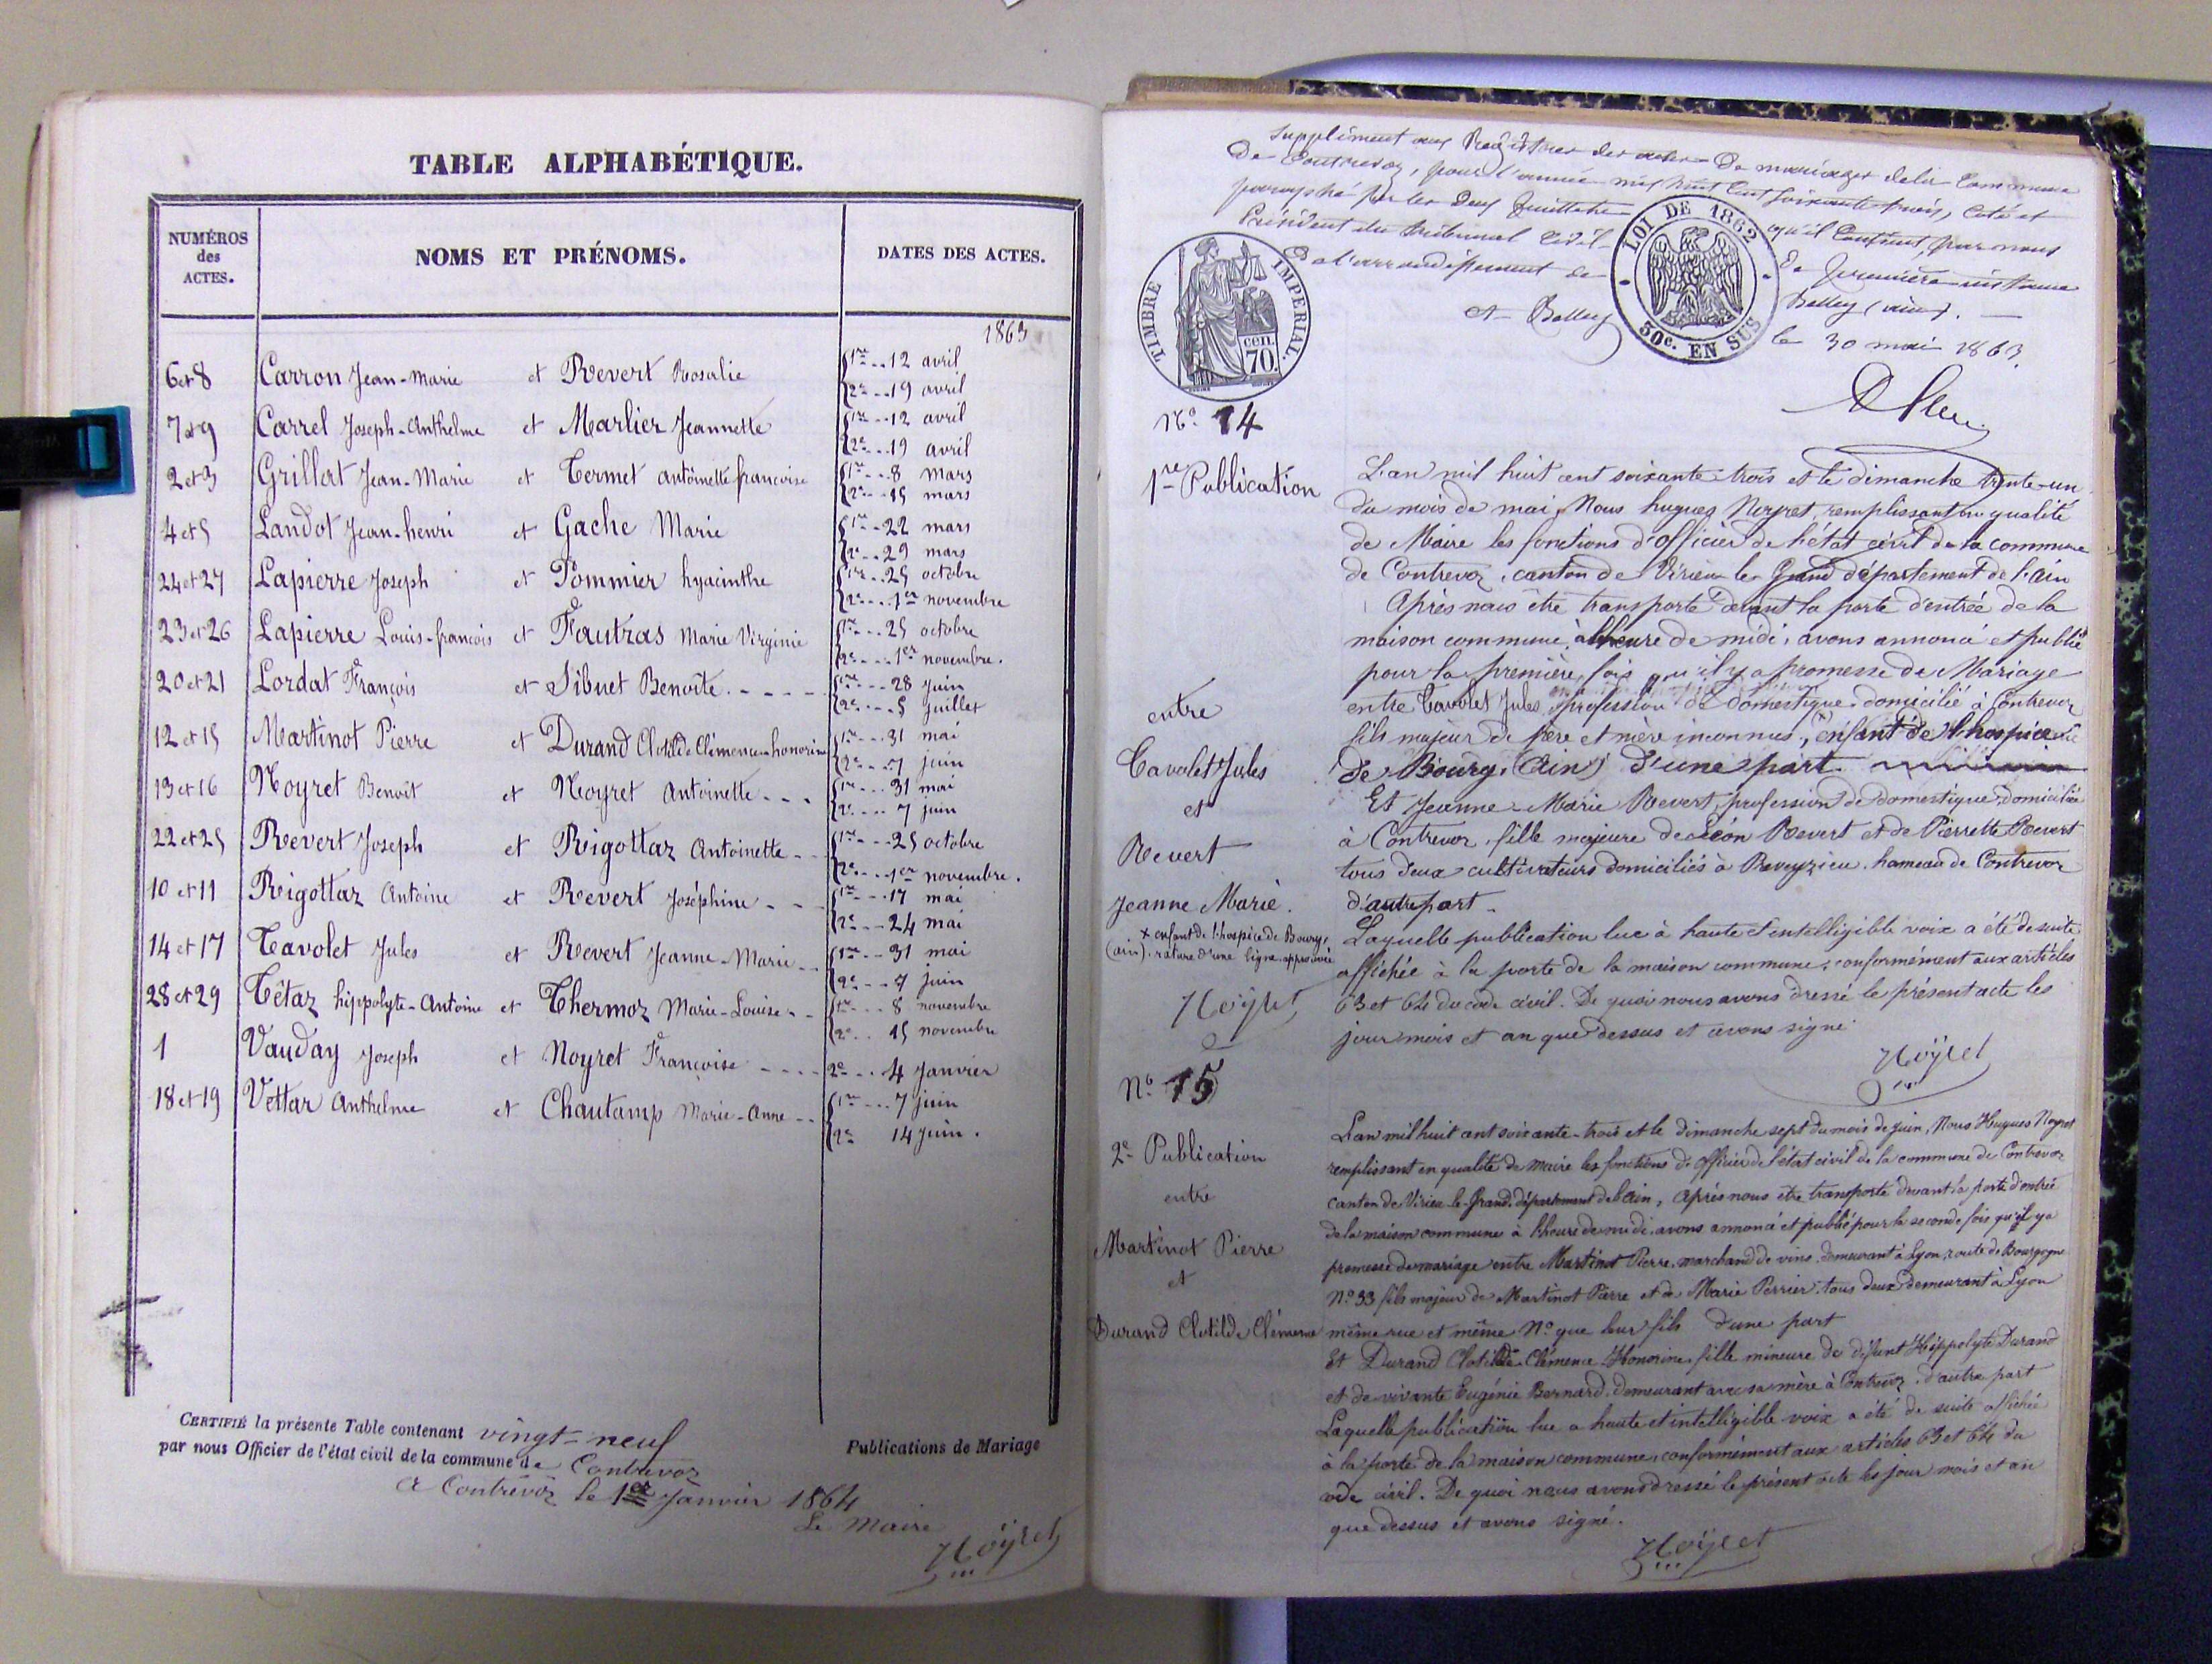 TABLE ALPHABÉTIQUE.
NUMÉROS des ACTES.
NOMS ET PRÉNOMS.
DATES DES ACTES.
1863
6 et 8 Carron Jean-Marie et Revert Rosalie 1re -- 12 avril
2e -- 19 avril
7 et 9 Carrel Joseph-Anthelme et Marlier Jeannette 1re -- 12 avril
2e -- 19 avril
2 et 3 Grillet Jean-Marie et Termet antoinette françoise 1re -- 8 mars
2e -- 15 mars
4 et 5 Landot Jean-henri et Gache Marie 1re -- 22 mars
2e -- 29 mars
24 et 27 Lapierre Joseph et Pommier hyacinthe 1re -- 25 octobre
2e -- 1er novembre
23 et 26 Lapierre Louis-françois et Fautras Marie Virginie 1re -- 25 octobre
2e --- 1er novembre.
20 et 21 Lordat François et Sibuet Benoîte ----- 1re --- 28 Juin
2e --- 5 Juillet
12 et 15 Martinot Pierre et Durand Clotilde Clémence-honorine 1re --- 31 mai
2e --- 7 juin
13 et 16 Noyret Benoît et Noyret Antoinette --- 1re --- 31 mai
2e --- 7 juin
22 et 25 Revert Joseph et Rigottaz Antoinette -- 1re --- 25 octobre
2e --- 1er novembre.
10 et 11 Rigottaz Antoine et Revert Joséphine --- 1re --- 17 mai
2e --- 24 mai
14 et 17 Tavolet Jules et Revert Jeanne-Marie -- 1re --- 31 mai
2e --- 7 juin
28 et 29 Têtaz hippolyte-Antoine et Thermoz Marie-Louise -- 1re --- 8 novembre
2e -- 15 novembre
1 Vauday Joseph et Noyret Françoise ---- 2e -- 4 Janvier
18 et 19 Vettar Anthelme et Chautamp Marie-Anne -- 1re --- 7 juin
2e 14 Juin.
CERTIFIÉ la présente Table contenant vingt-neuf
par nous Officier de l'état civil de la commune de Contrevoz
Publications de Mariage
A Contrevoz le 1er Janvier 1864
Le Maire
Noÿret
Supplément aux Registres des actes de mariages de la Commune
De Contrevoz, pour l'année mil huit Cent soixante trois, Coté et
paraphé par les Deux feuillets qu'il Contient, par nous
Président du tribunal Civil de première instance
De l'arrondissement de Belley (ain). —
A Belley le 30 mai 1863.
LOI DE 1862
50c. EN SUS
TIMBRE IMPERIAL.
CEN. 70.
No. 14
1re Publication
L'an mil huit cent soixante-trois et le dimanche trente-un
du mois de mai, Nous hugues Noyret, remplissant en qualité
de Maire les fonctions d'Officier de l'état civil de la commune
de Contrevoz, canton de Virieu-le-Grand département de l'Ain
Après nous être transporté devant la porte d'entrée de la
maison commune, à l'heure de midi, avons annoncé et publié
pour la première fois qu'il y a promesse de Mariage
entre
entre Tavolet Jules, profession de domestique domicilié à Contrevoz
fils majeur de père et mère inconnus, enfant de l'hospice
Tavolet Jules
de Bourg, (Ain) d'une part.
et
Et Jeanne-Marie Revert, profession de domestique domiciliée
Revert
à Contrevoz, fille majeure de Léon Revert et de Pierrette Revert
tous deux cultivateurs domiciliés à Preveyzieu, hameau de Contrevoz
Jeanne Marie.
d'autre part.
x enfant de l'hospice de Bourg,
(ain). rature d'une ligne approuvée
Noÿret
Laquelle publication lue à haute et intelligible voix a été de suite
affichée à la porte de la maison commune, conformément aux articles
63 et 64 du code civil. De quoi nous avons dressé le présent acte les
jour mois et an que dessus et avons signé.
Noÿret
No. 15
2e Publication
entre
Martinot Pierre
et
Durand Clotilde Clémence
L'an mil huit cent soixante-trois et le dimanche sept du mois de juin, Nous Hugues Noyret
remplissant en qualité de maire les fonctions d'officier de l'état civil de la commune de Contrevoz
canton de Virieu-le-Grand, département de l'Ain, après nous être transporté devant la porte d'entrée
de la maison commune à l'heure de midi, avons annoncé et publié pour la seconde fois qu'il y a
promesse de mariage entre Martinot Pierre, marchand de vins demeurant à Lyon, route de Bourgogne
No. 33 fils majeur de Martinot Pierre et de Marie Perrier, tous deux demeurant à Lyon
même rue et même No. que leur fils d'une part
Et Durand Clotilde Clémence Honorine, fille mineure de défunt Hippolyte Durand
et de vivante Eugénie Bernard, demeurant avec sa mère à Contrevoz, d'autre part
Laquelle publication lue a haute et intelligible voix a été de suite affichée
à la porte de la maison commune, conformément aux articles 63 et 64 du
code civil. De quoi nous avons dressé le présent acte les jour mois et an
que dessus et avons signé.
Noÿret